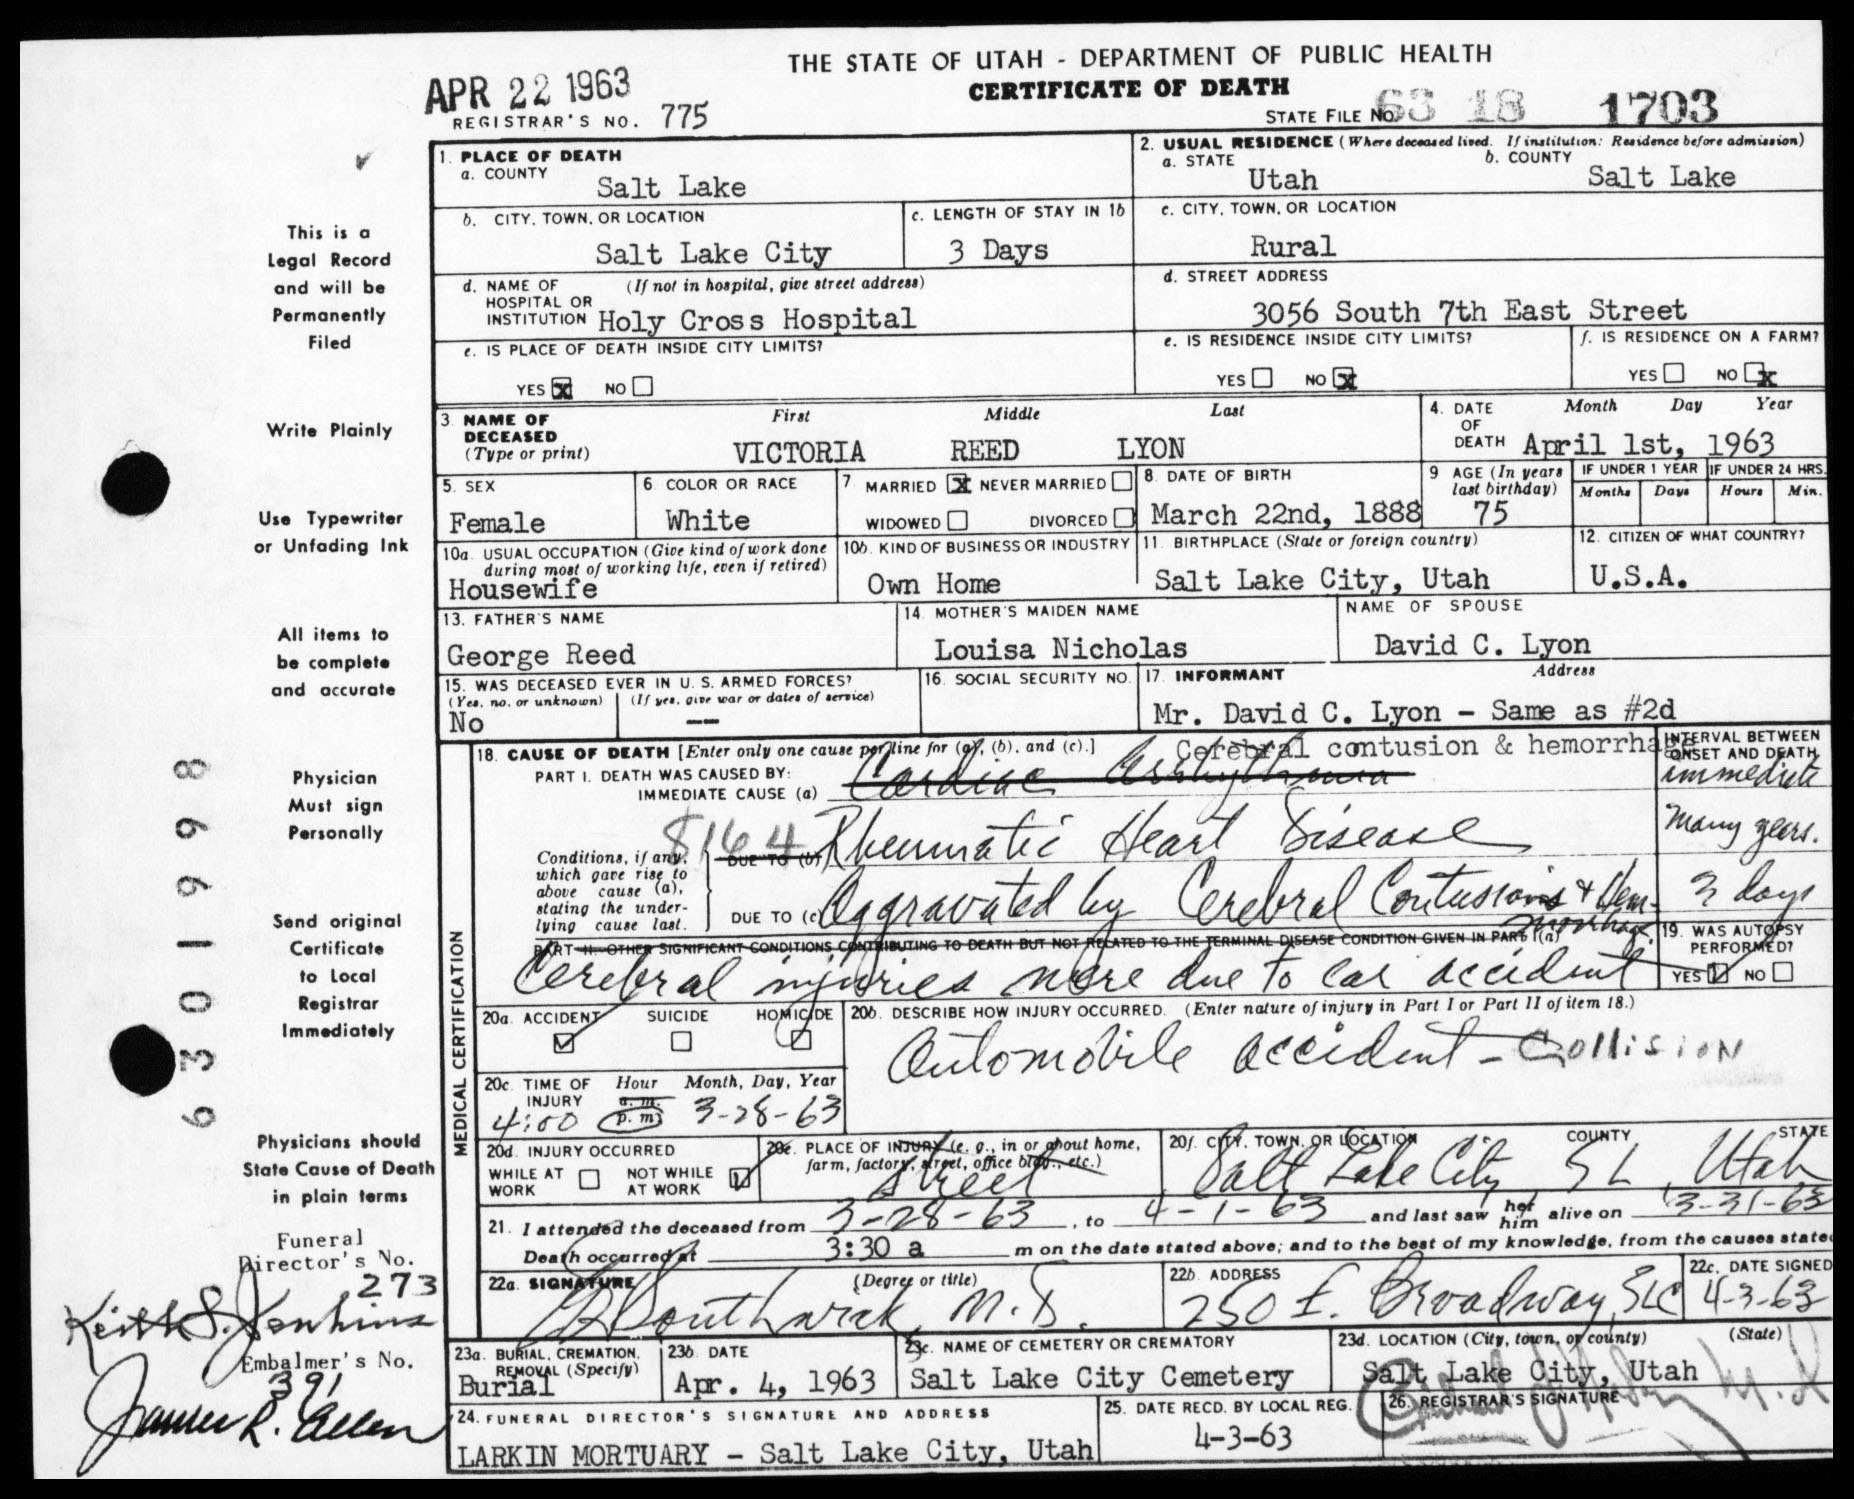 THE STATE OF UTAH - DEPARTMENT OF PUBLIC HEALTH
CERTIFICATE OF DEATH
APR 22 1963
REGISTRAR'S NO. 775
STATE FILE No. 63 18 1703
1. PLACE OF DEATH
a. COUNTY
Salt Lake
2. USUAL RESIDENCE (Where deceased lived. If institution: Residence before admission)
a. STATE
Utah
b. COUNTY
Salt Lake
b. CITY, TOWN, OR LOCATION
Salt Lake City
c. LENGTH OF STAY IN 1b
3 Days
c. CITY, TOWN, OR LOCATION
Rural
d. NAME OF HOSPITAL OR INSTITUTION (If not in hospital, give street address)
Holy Cross Hospital
d. STREET ADDRESS
3056 South 7th East Street
e. IS PLACE OF DEATH INSIDE CITY LIMITS?
YES X NO
e. IS RESIDENCE INSIDE CITY LIMITS?
YES NO X
f. IS RESIDENCE ON A FARM?
YES NO X
3. NAME OF DECEASED (Type or print)
First Middle Last
VICTORIA REED LYON
4. DATE OF DEATH
Month Day Year
April 1st, 1963
5. SEX
Female
6. COLOR OR RACE
White
7. MARRIED X NEVER MARRIED
WIDOWED DIVORCED
8. DATE OF BIRTH
March 22nd, 1888
9 AGE (In years last birthday)
75
IF UNDER 1 YEAR
Months Days
IF UNDER 24 HRS.
Hours Min.
10a. USUAL OCCUPATION (Give kind of work done during most of working life, even if retired)
Housewife
10b. KIND OF BUSINESS OR INDUSTRY
Own Home
11. BIRTHPLACE (State or foreign country)
Salt Lake City, Utah
12. CITIZEN OF WHAT COUNTRY?
U.S.A.
13. FATHER'S NAME
George Reed
14. MOTHER'S MAIDEN NAME
Louisa Nicholas
NAME OF SPOUSE
David C. Lyon
15. WAS DECEASED EVER IN U. S. ARMED FORCES?
(Yes, no, or unknown) (If yes, give war or dates of service)
No --
16. SOCIAL SECURITY NO.
17. INFORMANT Address
Mr. David C. Lyon - Same as #2d
MEDICAL CERTIFICATION
18. CAUSE OF DEATH [Enter only one cause per line for (a), (b), and (c).]
Cerebral contusion & hemorrhage
INTERVAL BETWEEN ONSET AND DEATH
PART I. DEATH WAS CAUSED BY:
IMMEDIATE CAUSE (a) Cardiac
immediate
8164
Conditions, if any, which gave rise to above cause (a), stating the underlying cause last.
DUE TO (b) Rheumatic Heart Disease
Many years.
DUE TO (c) Aggravated by Cerebral Contusions & Hemorrhage
3 days
PART II. OTHER SIGNIFICANT CONDITIONS CONTRIBUTING TO DEATH BUT NOT RELATED TO THE TERMINAL DISEASE CONDITION GIVEN IN PART I(a)
Cerebral injuries were due to car accident
19. WAS AUTOPSY PERFORMED?
YES NO
20a. ACCIDENT SUICIDE HOMICIDE
20b. DESCRIBE HOW INJURY OCCURRED. (Enter nature of injury in Part I or Part II of item 18.)
Automobile accident - Collision
20c. TIME OF INJURY Hour Month, Day, Year
4:00 a. m. p. m. 3-28-63
20d. INJURY OCCURRED
WHILE AT WORK NOT WHILE AT WORK
20e. PLACE OF INJURY (e. g., in or about home, farm, factory, street, office bldg., etc.)
Street
20f. CITY, TOWN, OR LOCATION COUNTY STATE
Salt Lake City, SL, Utah
21. I attended the deceased from 3-28-63, to 4-1-63 and last saw her him alive on 3-31-63
Death occurred at 3:30 a m on the date stated above; and to the best of my knowledge, from the causes stated
22a. SIGNATURE (Degree or title)
Southwick M.D.
22b. ADDRESS
250 E. Broadway SLC
22c. DATE SIGNED
4-3-63
23a. BURIAL, CREMATION, REMOVAL (Specify)
Burial
23b. DATE
Apr. 4, 1963
23c. NAME OF CEMETERY OR CREMATORY
Salt Lake City Cemetery
23d. LOCATION (City, town, or county) (State)
Salt Lake City, Utah
24. FUNERAL DIRECTOR'S SIGNATURE AND ADDRESS
LARKIN MORTUARY - Salt Lake City, Utah
25. DATE RECD. BY LOCAL REG.
4-3-63
26. REGISTRAR'S SIGNATURE
This is a
Legal Record
and will be
Permanently
Filed
Write Plainly
Use Typewriter
or Unfading Ink
All items to
be complete
and accurate
Physician
Must sign
Personally
Send original
Certificate
to Local
Registrar
Immediately
Physicians should
State Cause of Death
in plain terms
Funeral
Director's No.
273
Keith S. Jenkins
Embalmer's No.
391
James R. Allen
6301998